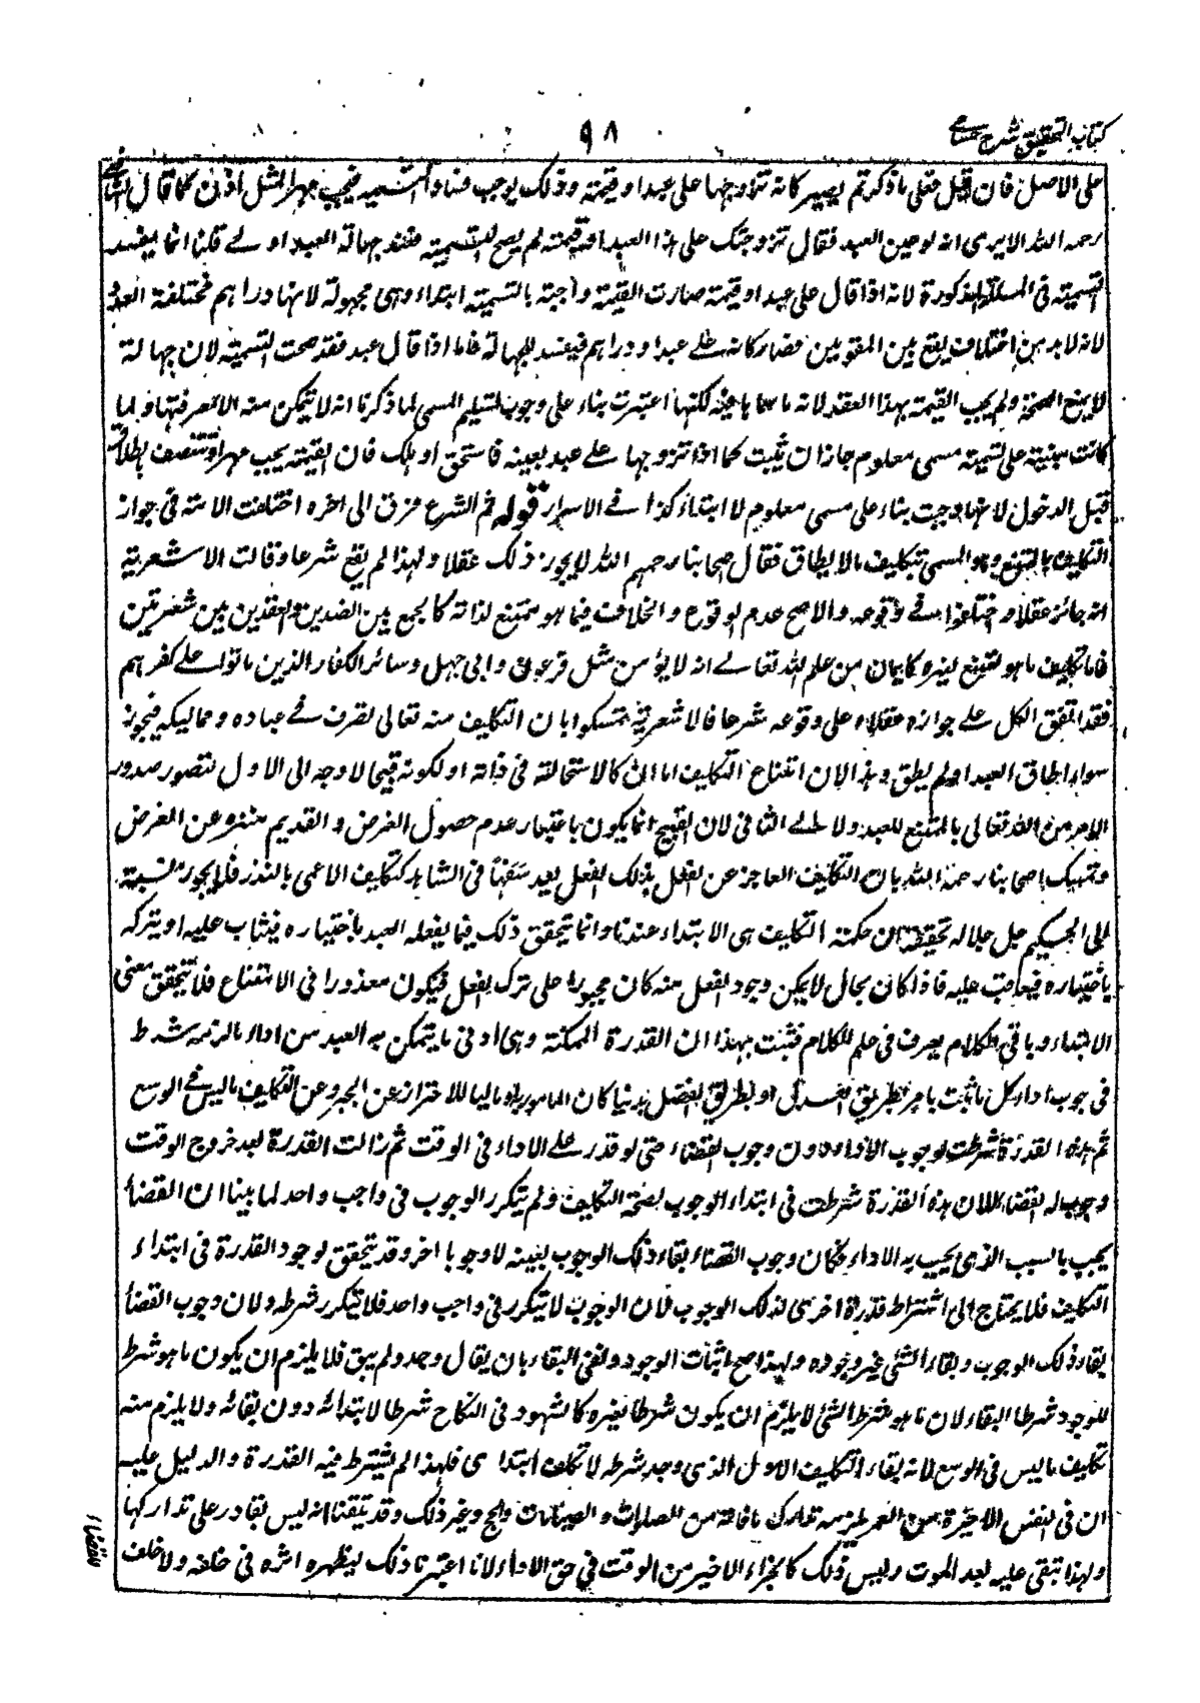 كتاب التحقيق شرح حسامي
٩٨
على الاصل فان قيل فعلى ما ذكرتم يصير كانه تزوجها على عبد او قيمته وذلك يوجب فساد التسمية فيجب مهر المثل اذن كما قال الشافعي
رحمه الله الا يرى انه لو عين العبد فقال تزوجتك على هذا العبد او قيمته لم يصح التسمية فعند جهالة العبد اولے قلنا انما يفسد
التسمية فى المسئلة المذكورة لانه اذا قال على عبد او قيمته صارت القيمة واجبة بالتسمية ابتداء وهى مجهولة لانها دراهم مختلفة العدد
لانه لا بد من اختلاف يقع بين المقومين فصار كانه علے عبد او دراهم فيفسد للجهالة فاما اذا قال عبد فقد صحت التسمية لان جهالته
لا يمنع الصحة ولم يجب القيمة بهذا العقد لانه ما سماها فيه لكنها اعتبرت بناء على وجوب تسليم المسمى لما ذكرنا انه لا يتمكن منه الا بمعرفتها ولما
كانت مبنية على تسمية مسمى معلوم جاز ان يثبت كما اذا تزوجها علے عبد بعينه فاستحق او هلك فان القيمة يجب مهرا وتتنصف بطلاق
قبل الدخول لانها وجبت بناء على مسمى معلوم لا ابتداء كذا فے الاسرار قوله ثم الشرع فرق الى اخره اختلفت الامة فى جواز
التكليف بالممتنع وهو المسمى بتكليف ما لا يطاق فقال اصحابنا رحمهم الله لا يجوز ذلك عقلا ولهذا لم يقع شرعا وقالت الاشعرية
انه جائز عقلا واختلفوا فے وقوعه والاصح عدم الوقوع والخلاف فيما هو ممتنع لذاته كالجمع بين الضدين والعقدين بين شعرتين
فاما تكليف ما هو ممتنع لغيره كايمان من علم الله تعالے انه لا يؤمن مثل فرعون وابى جهل وسائر الكفار الذين ماتوا علے كفرهم
فقد اتفق الكل علے جوازه عقلا وعلى وقوعه شرعا فالاشعرية تمسكوا بان التكليف منه تعالى تصرف فے عباده ومماليكه فيجوز
سواء اطاق العبد او لم يطق وهذا لان امتناع التكليف اما ان كا لاستحالته فى ذاته او لكونه قبيحا لا وجه الى الاول لتصور صدور
الامر من الله تعالى بالممتنع للعبد ولا الے الثانى لان القبيح انما يكون باعتبار عدم حصول الغرض والقديم منزه عن الغرض
وتمسك اصحابنا رحمهم الله بان التكليف العاجز عن الفعل بذلك الفعل يعد سفها فى الشاهد كتكليف الاعمى بالنظر فلا يجوز نسبته
الى الحكيم جل جلاله تحقيقه ان حكمة التكليف هى الابتداء عندنا وانما يتحقق ذلك فيما يفعله العبد باختياره فيثاب عليه او يتركه
باختياره فيعاقب عليه فاذا كان بحال لا يمكن وجود الفعل منه كان مجبورا على ترك الفعل فيكون معذورا فى الامتناع فلا يتحقق معنى
الابتداء وباقى الكلام يعرف فى علم الكلام فثبت بهذا ان القدرة الممكنة وهى ادنى ما يتمكن به العبد من اداء ما لزمه شرط
فى وجوب اداء كل ما ثبت بامر بطريق العدل او بطريق الفضل بدنيا كان المامور به او ماليا للاحتراز عن الجبر وعن التكليف ما ليس فے الوسع
ثم هذه القدرة شرطت لوجوب الاداء دون وجوب القضاء حتى لو قدر علے الاداء فى الوقت ثم زالت القدرة بعد خروج الوقت
وجب له القضاء لان هذه القدرة شرطت فى ابتداء الوجوب لصحة التكليف ولم يتكرر الوجوب فى واجب واحد لما بينا ان القضاء
يجب بالسبب الذى يجب به الاداء فكان وجوب القضاء بقاء ذلك الوجوب بعينه لا وجوبا اخر وقد تحقق وجود القدرة فى ابتداء
التكليف فلا يحتاج الى اشتراط قدرة اخرى لذلك الوجوب لان الوجوب لا يتكرر فى واجب واحد فلا يتكرر شرطه ولان وجوب القضاء
بقاء ذلك الوجوب وبقاء الشئ غير وجوده ولهذا صح اثبات الوجود ونفى البقاء بان يقال وجد ولم يبق فلا يلزم ان يكون ما هو شرط
للوجود شرطا للبقاء لان ما هو شرط الشئ لا يلزم ان يكون شرطا لغيره كالشهود فى النكاح شرط لابتدائه دون بقائه ولا يلزم منه
تكليف ما ليس فى الوسع لانه بقاء التكليف الاول الذى وجد شرطه لا تكليف ابتدائى فلهذا لم يشترط فيه القدرة والدليل عليه
ان فى النفس الاخيرة من العمر يلزمه تدارك ما فاته من الصلوات والصيامات والحج وغير ذلك وقد تيقنا انه ليس بقادر على تداركها
ولهذا تبقى عليه بعد الموت وليس ذلك كالجزء الاخير من الوقت فى حق الاداء لانا اعتبرنا ذلك ليظهر اثره فى خلفه ولا خلف
للقضاء